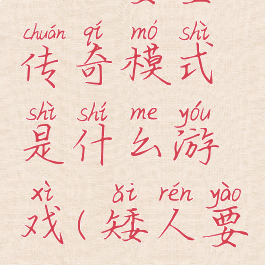 chuán qí mó shì
传奇模式
shì shí me yóu
是什么游
xì ǎi rén yào
戏(矮人要